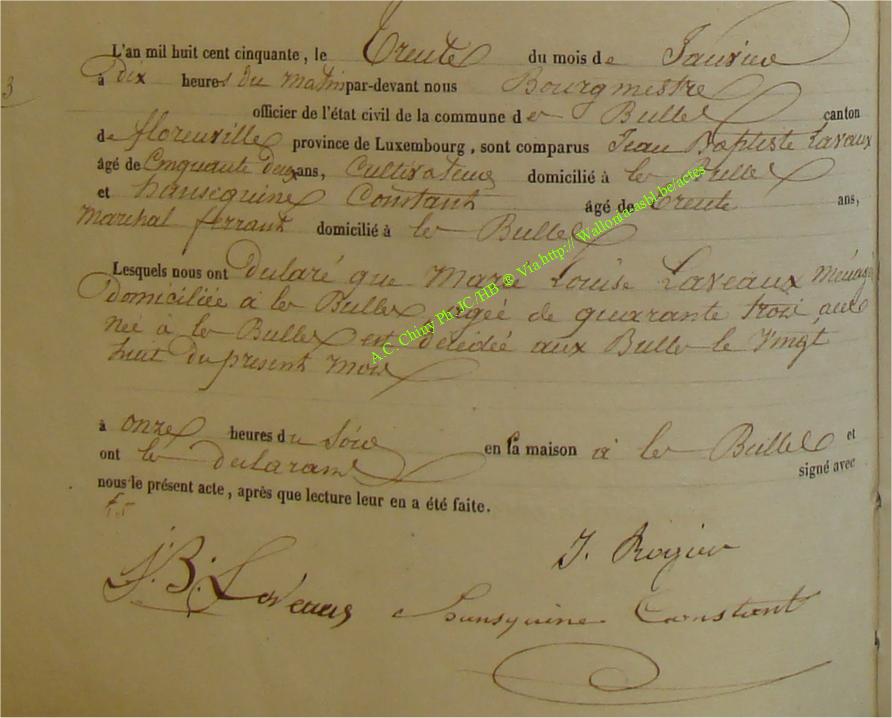 L'an mil huit cent cinquante, le Trente du mois de Janvier
à dix heures du matin par-devant nous Bourgmestre
3
officier de l'état civil de la commune de Bulles canton
de florenville province de Luxembourg, sont comparus Jean Baptiste Lavaux
âgé de Cinquante deux ans, Cultivateur domicilié à les Bulles
et hansequine Constant âgé de trente ans,
Marechal ferrant domicilié à les Bulles
Lesquels nous ont Dularé que Marie Louise Laveaux Ménag
domiciliée à les Bulles agée de quarante trois ans
née à les Bulles est décédée aux Bulles le Vingt
huit du présent mois
à onze heures du Soir en sa maison à les Bulles et
ont les dularans signé avec
nous le présent acte, après que lecture leur en a été faite.
J. Rogier
J. B. Laveaux hansquine Constant
A.C. Chiny Ph JC/HB ® Via http:// Wallonia-asbl.be/actes